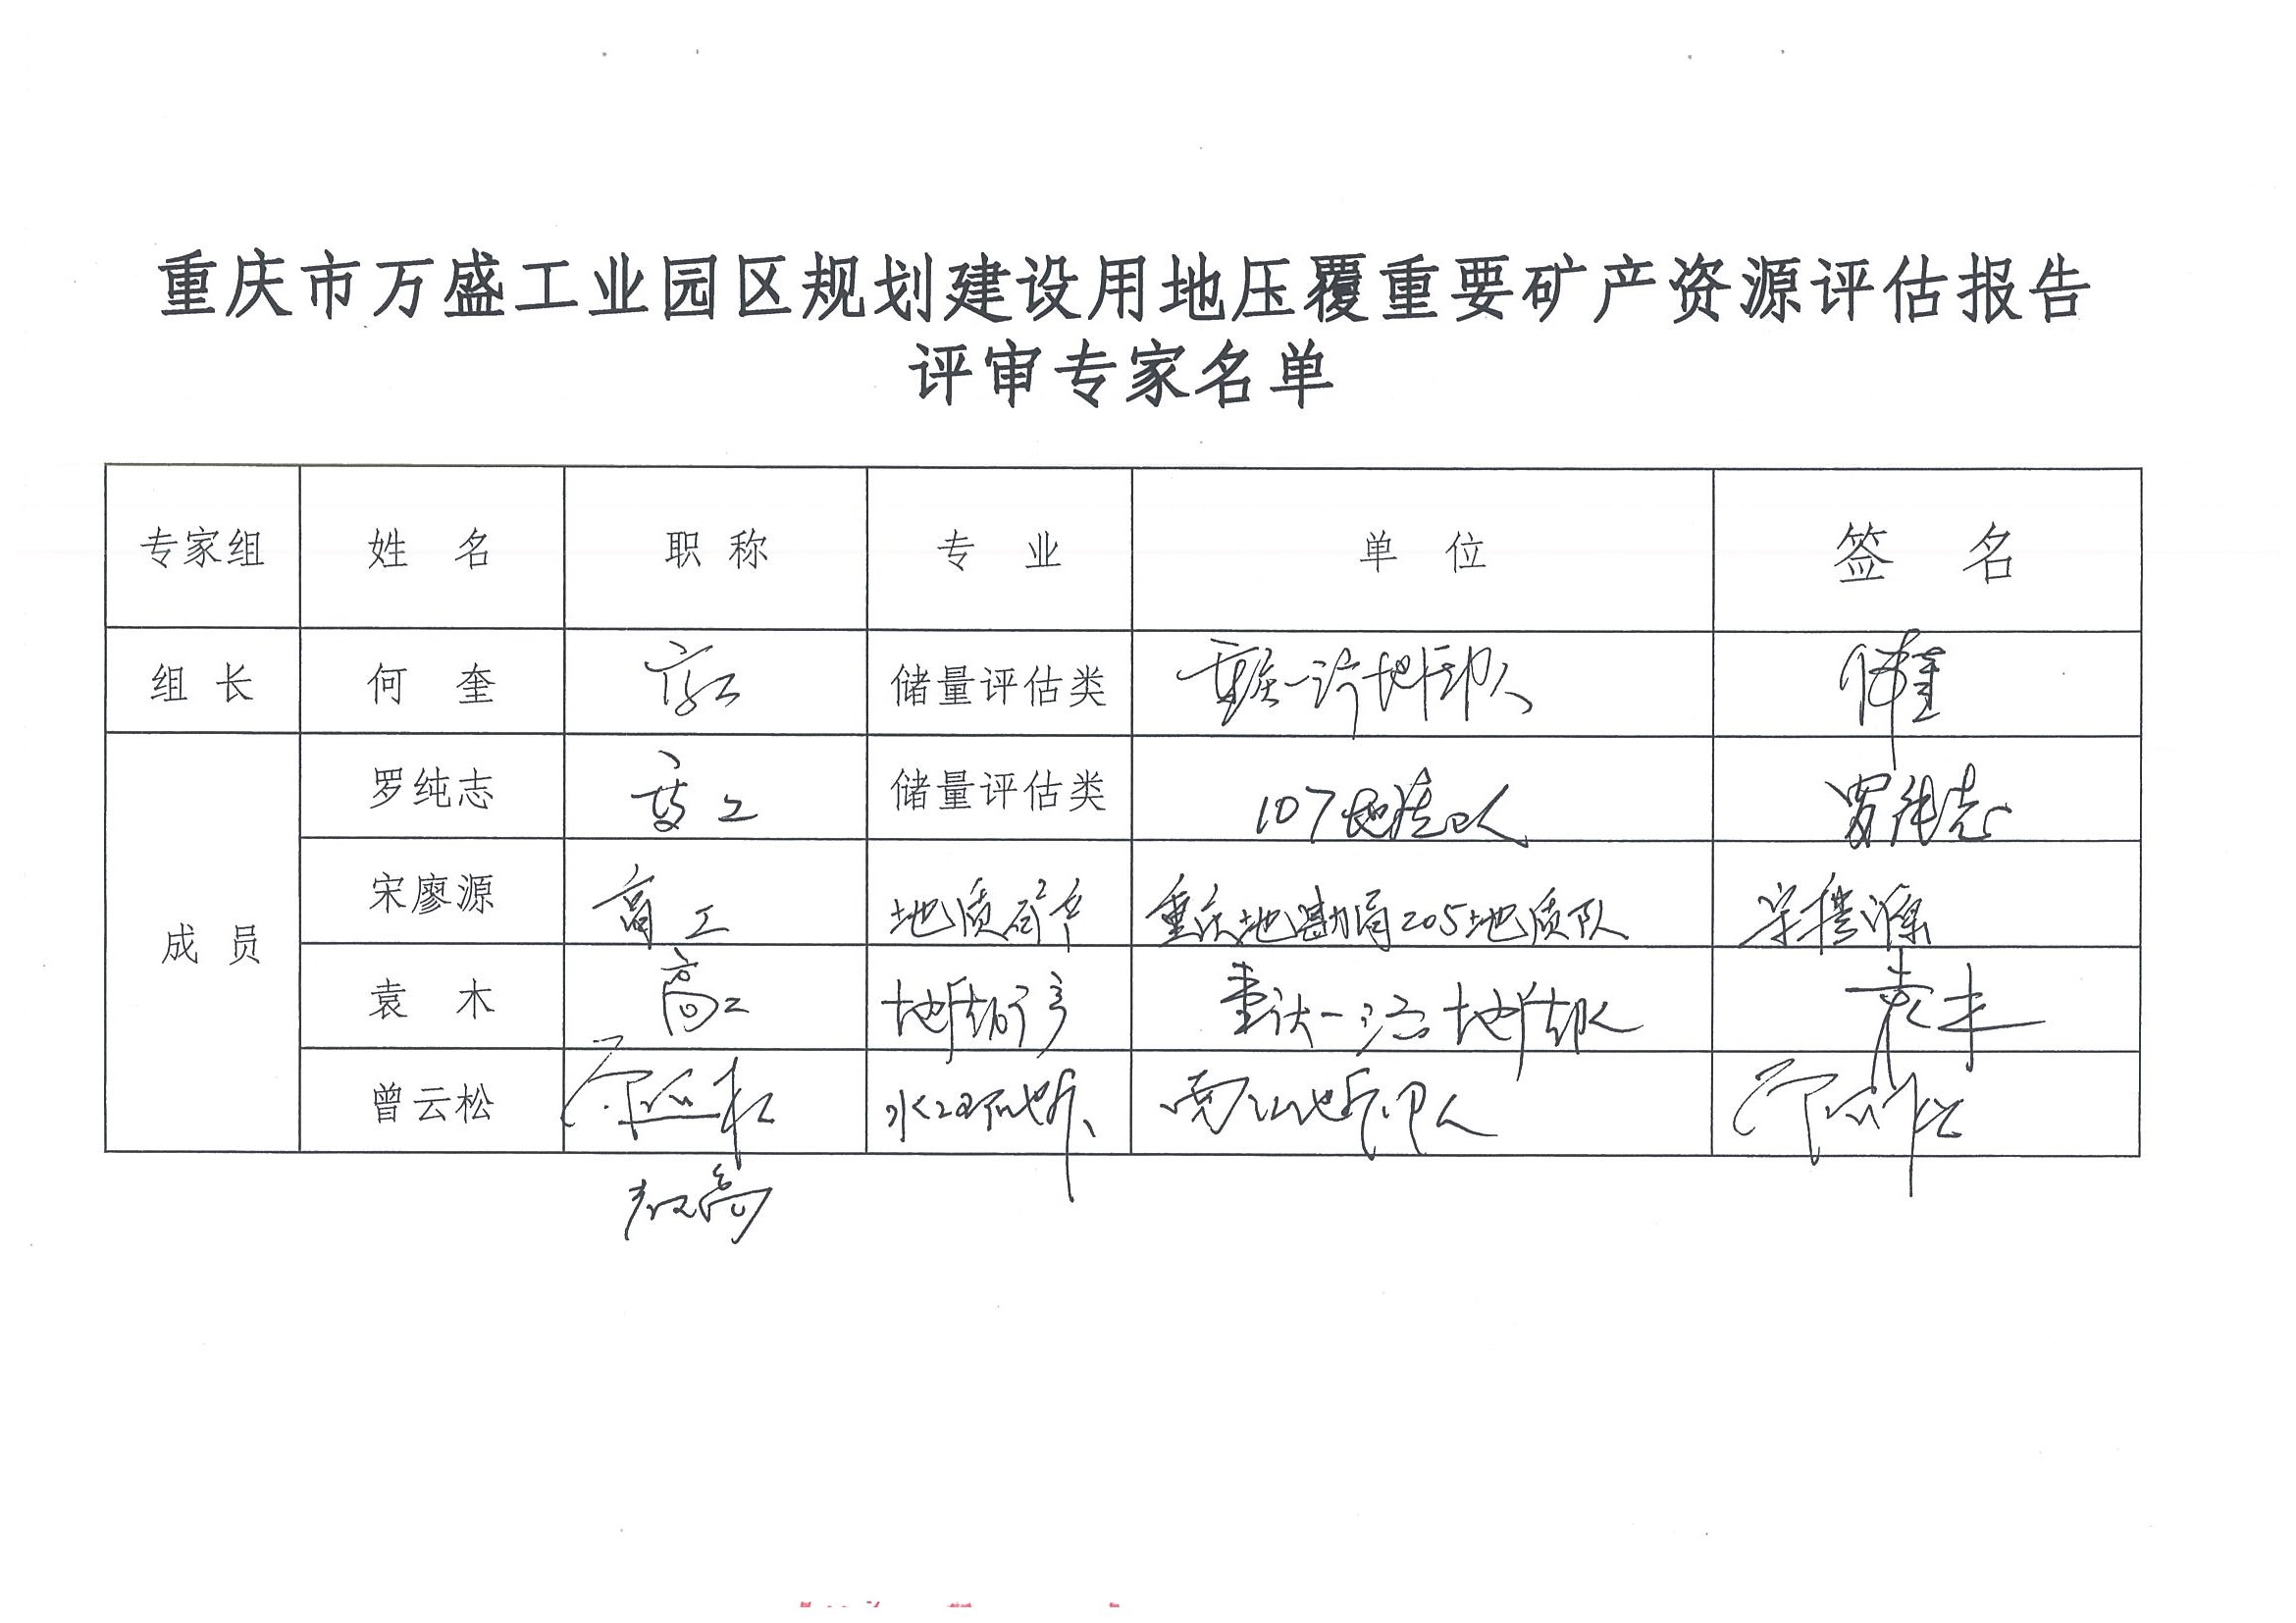 重庆市万盛工业园区规划建设用地压覆重要矿产资源评估报告
评审专家名单
专家组 姓 名 职 称 专 业 单 位 签 名
组 长 何 奎 高工 储量评估类 地质队 何奎
成 员
罗纯志 高工 储量评估类 107地质队 罗纯志
宋廖源 高工 地质矿产 重庆地勘局205地质队 宋廖源
袁 木 高工 地质矿产 地质队 袁木
曾云松 水工环地质 地质队
教高